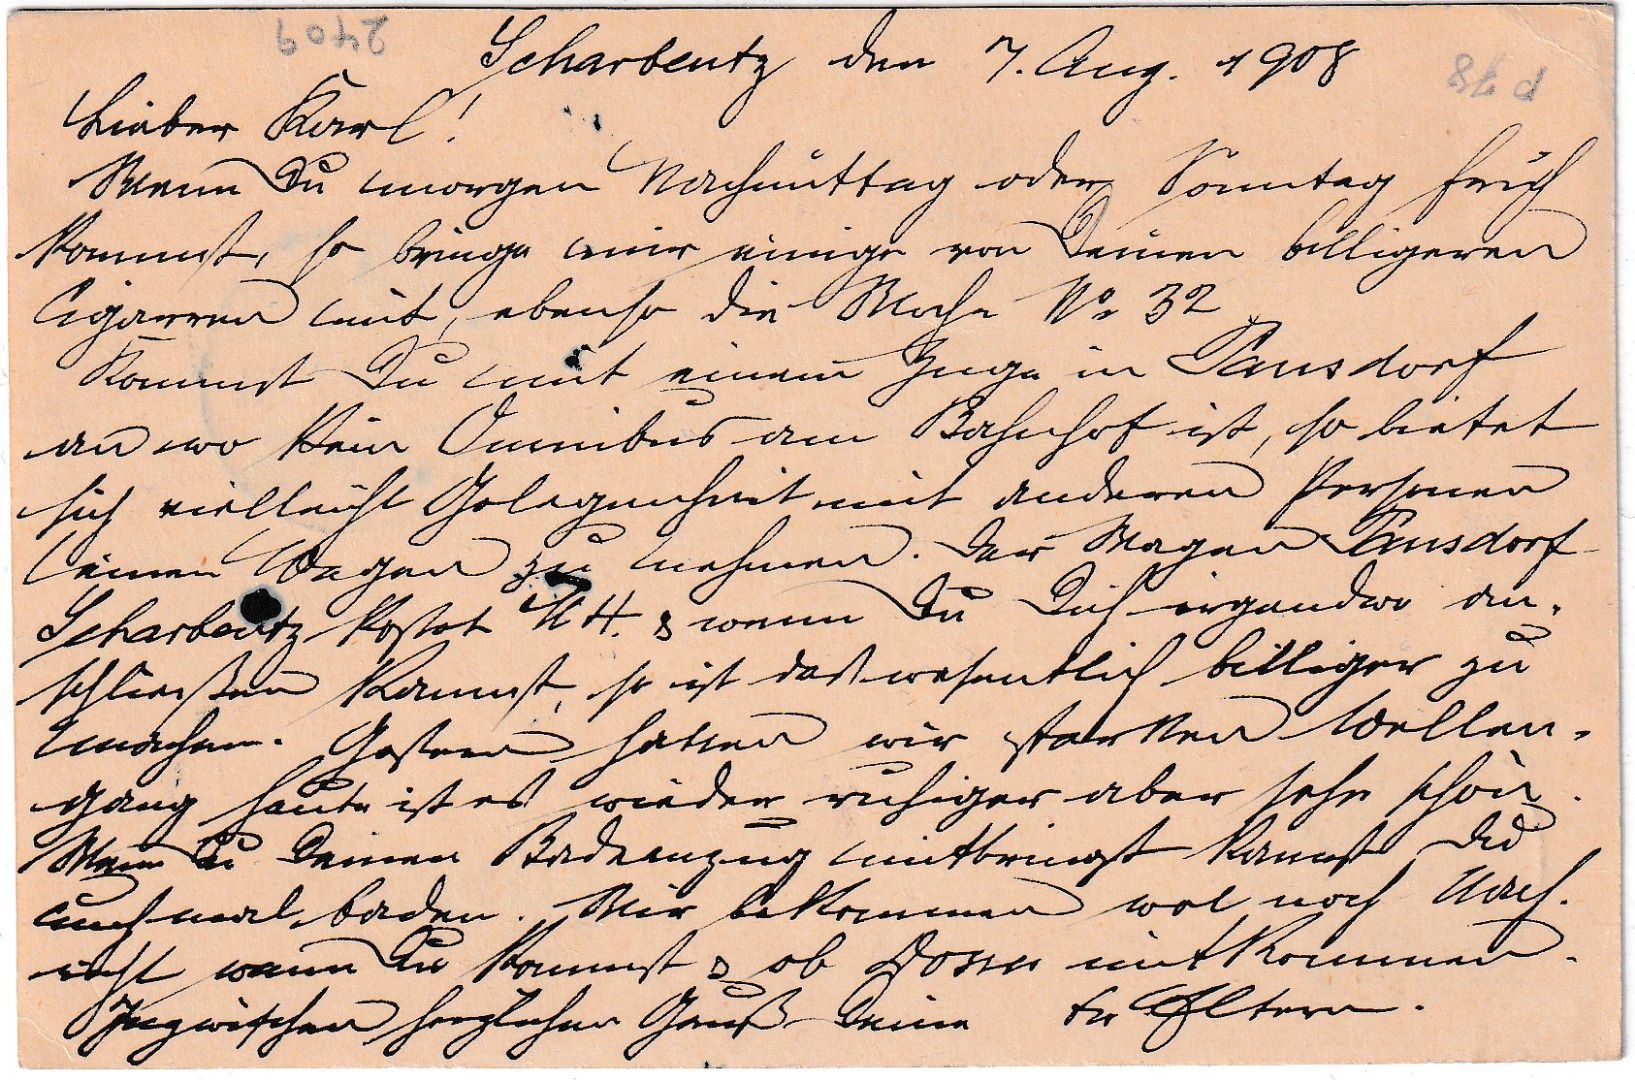 2409
Scharbeutz den 7. Aug. 1908
P 48
Lieber Karl!
Wenn Du morgen Nachmittag oder Sonntag früh
kommst, so bringe mir einige von Deinen billigeren
Cigarren mit, ebenso die Woche No 32
Kommst Du mit einem Zuge in Pansdorf
an wo kein Omnibus am Bahnhof ist, so bietet
sich vielleicht Gelegenheit mit anderen Personen
einen Wagen zu nehmen. Der Wagen Pansdorf-
Scharbeutz kostet M 4. & wenn Du Dich irgendwo an-
schließen kannst, so ist das wesentlich billiger zu
machen. Gestern hatten wir starken Wellen-
gang heute ist es wieder ruhiger aber sehr schön.
Wenn Du Deinen Badeanzug mitbringst kannst Du
auch mal baden. Wir bekommen wol noch Nach-
richt wann Du kommst & ob mitkommen.
Inzwischen herzlichen Gruß Deine Eltern.